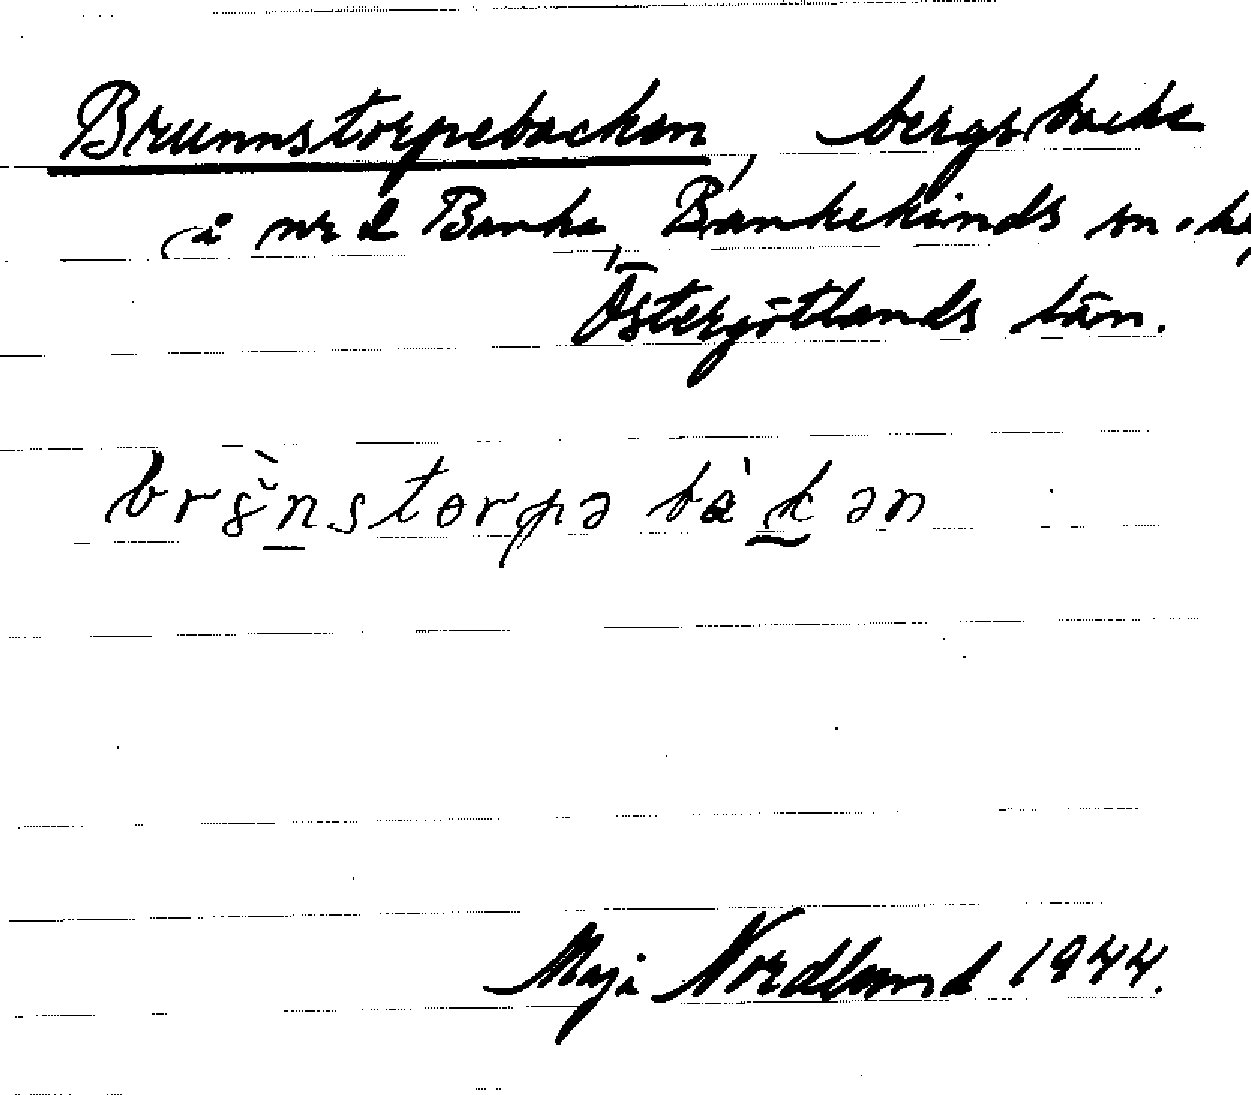 Brunnstorpebacken, bergsbacke
å nr 2 Banka, Bankekinds sn o. hd,
Östergötlands län.
brɞ̀nstorpə bàkən
Maja Nordlund 1944.